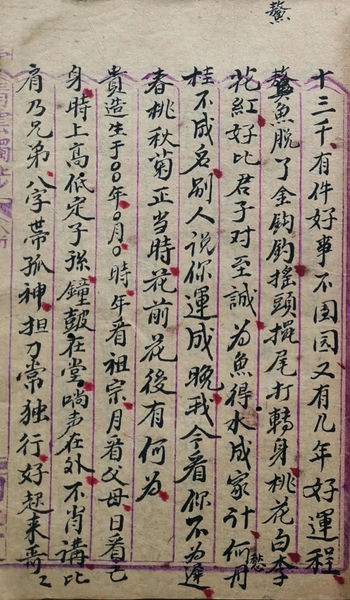 鰲
十三千有件好事不团园又有几年好運程
鰲魚脱了金鈎钓摇頭擺尾打轉身桃花白李
花紅好比君子对至誠為魚得水成家计何愁丹
桂不成名别人说你運成晚我今看你不为遲
春桃秋菊正当時花前花後有何为
貴造生于00年0月0時年看祖宗月看父母日看己
身時上高低定子孫鐘皷在堂响声在外不肖講比
肩乃兄弟八字帶孤神担刀常独行好起来哥々